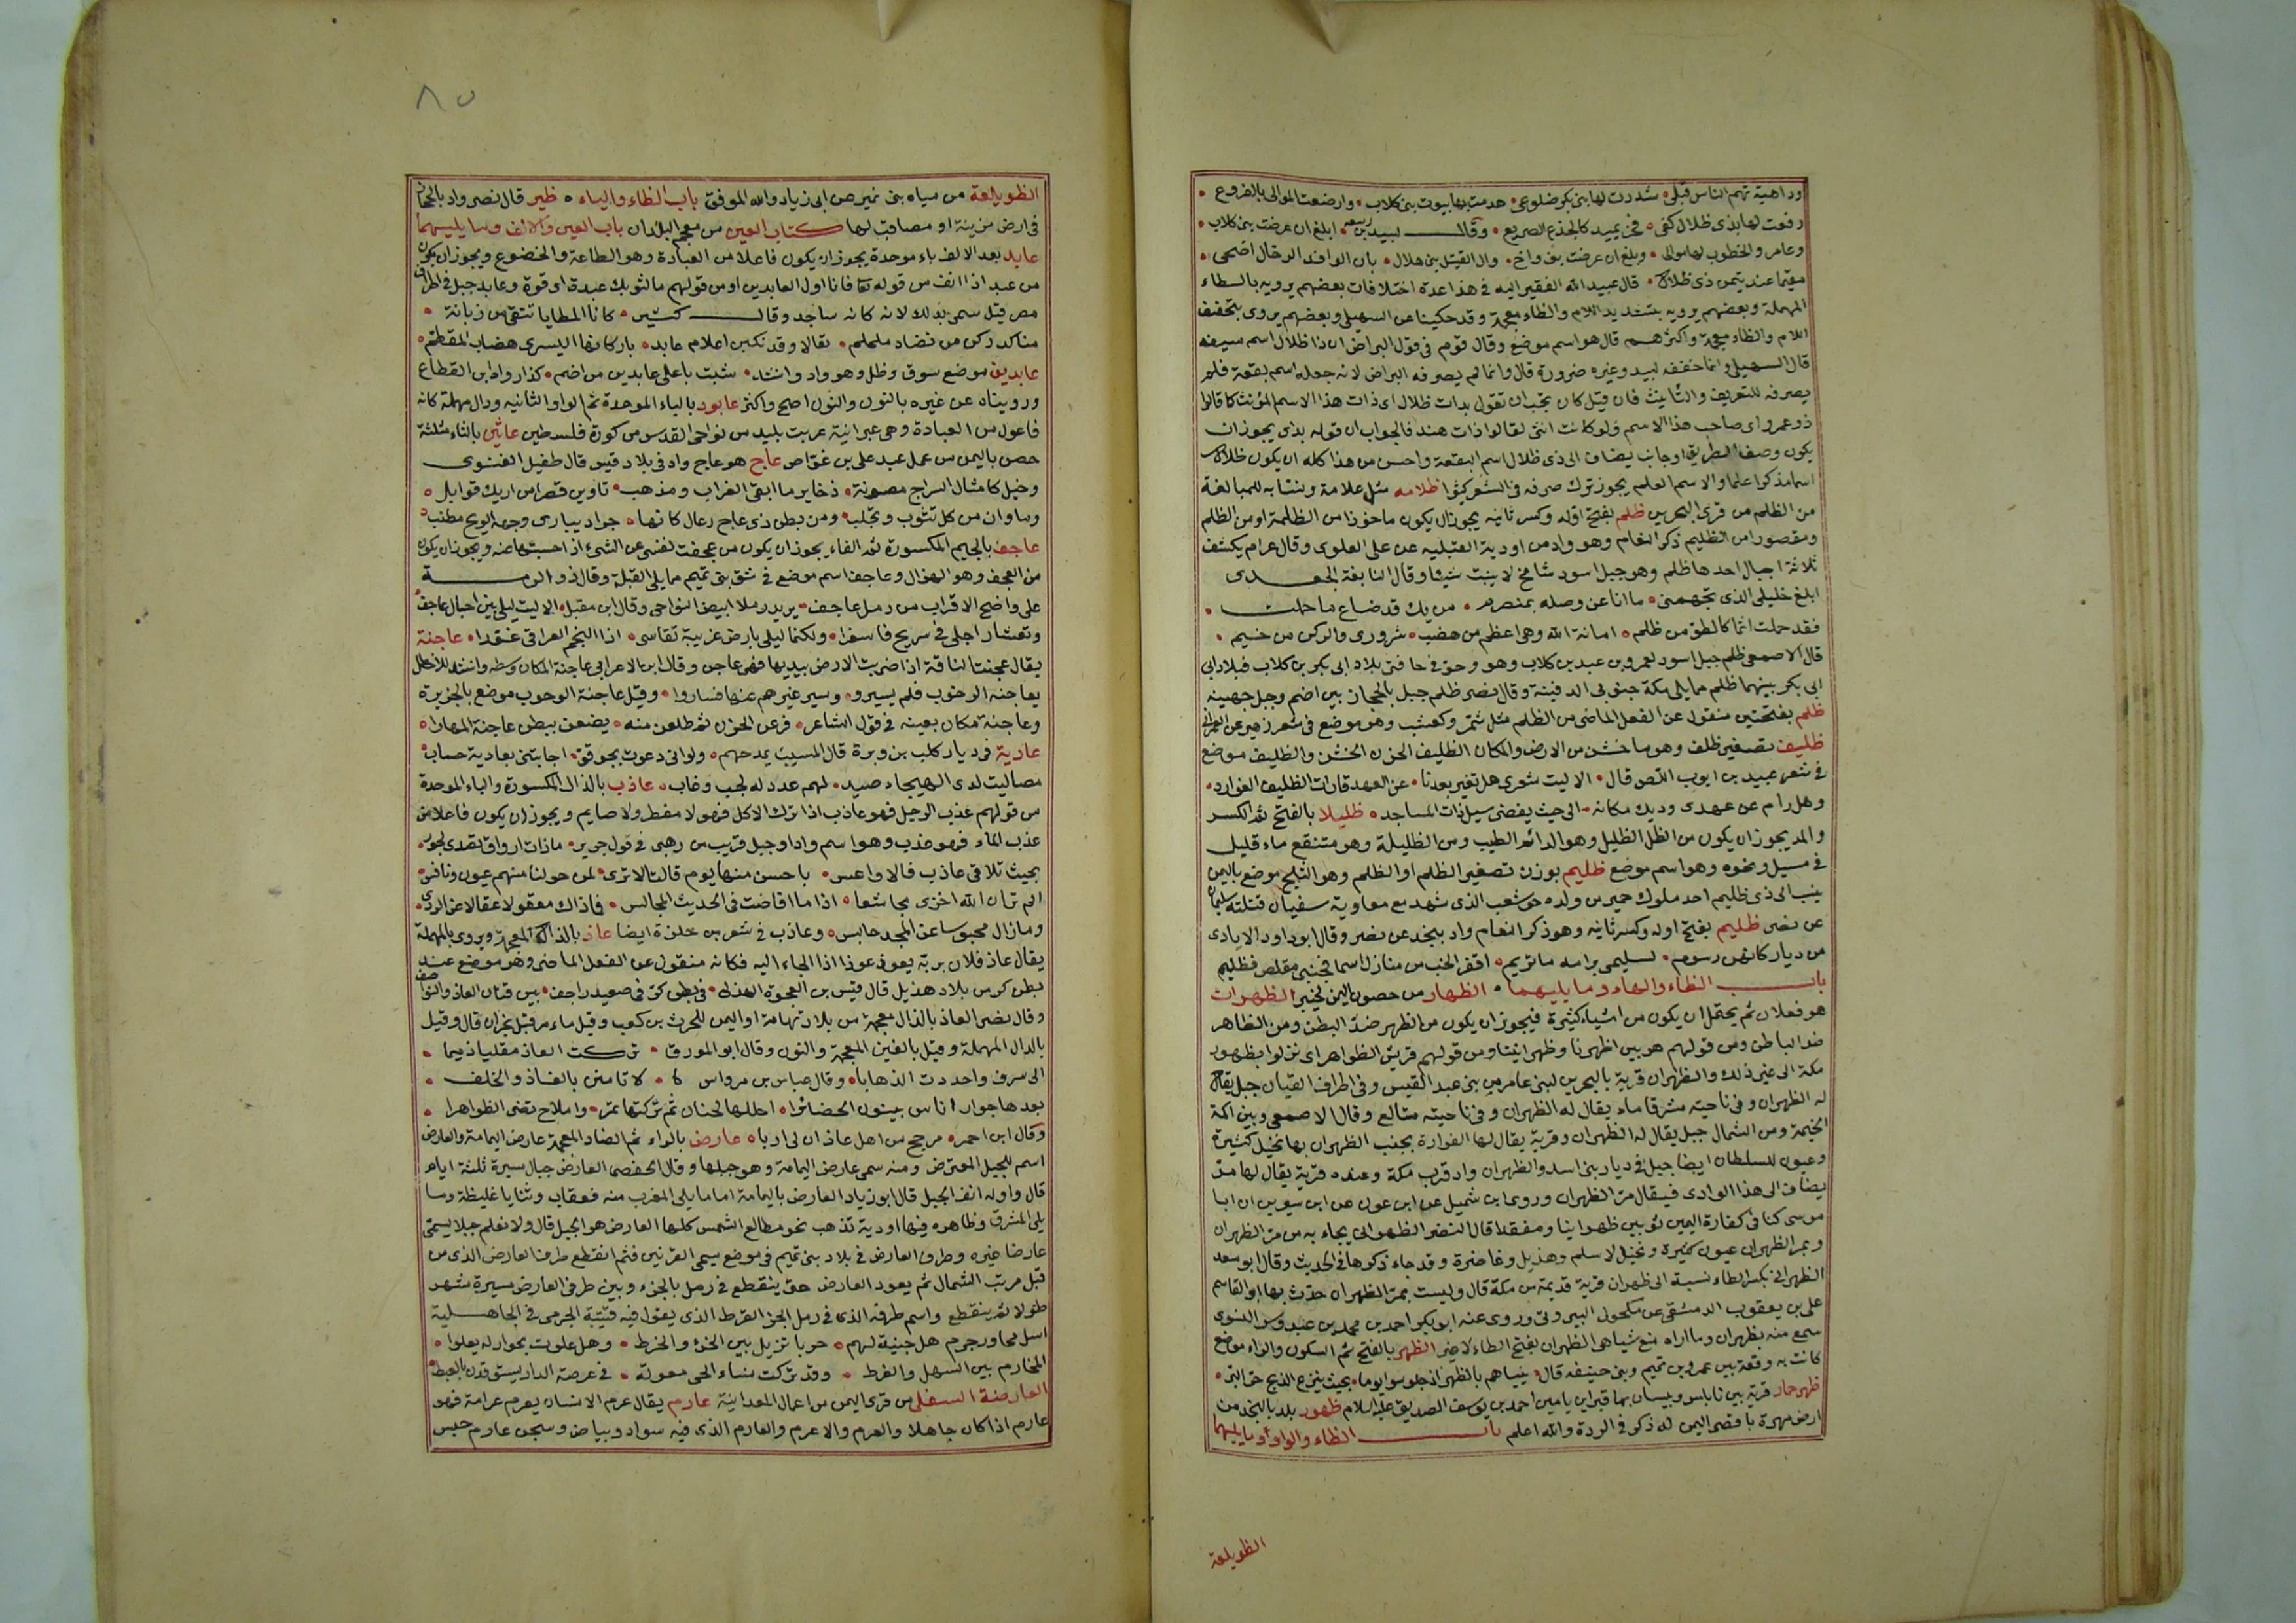 وداهية تهم الناس قبلي شددت لها بنى بكر ضلوعى هدمت بها بيوت بنى كلاب وارضعت الموالى بالضروع
رفعت لها بذى ظلال كفى فخر يميد كالجذع الصريع وقال لبيد بن ربيعه ابلغ ان عرضت بنى كلاب
وعامر والخطوب لها موالى وبلغ ان عرضت بنى هلال بان الوافد الرحال اضحى
مقيما عند تيمن ذى ظلال قال عبيد الله الفقير اليه فى هذا عدة اختلافات بعضهم يرويه بالطاء
المهملة وبعضهم يرويه بتشديد اللام والظاء معجمة وقد حكينا عن السهيلى وبعضهم يروى بتخفيف
اللام والظاء معجمة واكثرهم قال هو اسم موضع وقال قوم فى قول البراض ان ذا ظلال اسم سيفه
قال السهيلى وانما خففه لبيد وغيره ضرورة قال وانما لم يصرفه البراض لانه جعله اسم بقعة فلم
يصرفه للتعريف والتأنيث فان قيل كان يجب ان تقول بذات ظلال اى ذات هذا الاسم المؤنث كما قالوا
ذو عمرو اى صاحب هذا الاسم ولو كانت انثى لقالوا ذات هند فالجواب ان قوله بذى يجوز ان
يكون وصفا لطريق او جانب يضاف الى ذى ظلال اسم البقعة واحسن من هذا كله ان يكون ظلال
اسما مذكرا علما والاسم العلم يجوز ترك صرفه فى الشعر كثيرا ظلامه مثل علامة ونسابه للمبالغة
من الظلم من قرى البحرين ظلم بفتح اوله وكسر ثانيه يجوز ان يكون ماخوذا من الظلمة او من الظلم
ومقصورا من الظليم ذكر النعام وهو واد من اودية القبلية عن على العلوى وقال عرام يكتنف
ثلاثة اجبال احدها ظلم وهو جبل اسود شامخ لا ينبت شيئا وقال النابغة الجعدى
ابلغ خليلى الذى تجهمنى ما انا عن وصله بمنصرم من يك قد ضاع ما حملت
فقد حملت اثما كالطود من ظلم امانة الله وهى اعظم من هضب شرورى والركن من خيم
قال الاصمعى ظلم جبل اسود لعمرو بن عبد بن كلاب وهو وخو فى حافتى بلاد ابى بكر بن كلاب فبلاد ابى
ابى بكر بينهما ظلم مما يلى مكة جنوبى الدفينة وقال نصر ظلم جبل بالحجاز بين اضم وجبل جهينه
ظلم بفتحتين منقول عن الفعل الماضى من الظلم مثل شمر وكعثب وهو موضع فى شعر زهير عن العمرانى
ظليف تصغير ظلف وهو ما خشن من الارض والمكان الظليف الحزن الخشن والظليف موضع
فى شعر عبيد بن ايوب اللص قال الا ليت شعرى هل تغير بعدنا عن العهد قارات الظليف الفوارد
وهل رام عن عهدى وديك مكانه الى حيث يفضى سيل ذات المساجد ظليلا بالفتح ثم الكسر
والمد يجوز ان يكون من الظل الظليل وهو الدائم الطيب ومن الظليلة وهو مستنقع ماء قليل
فى مسيل ونحوه وهو اسم موضع ظليم بوزن تصغير الظلم او الظلم وهو الثلج موضع باليمن
ينسب الى ذى ظليم احد ملوك حمير من ولده حوشب الذى شهد مع معاوية صفين قتلته سليمان
عن نصر ظليم بفتح اوله وكسر ثانيه وهو ذكر النعام واد بنجد عن نصر وقال ابو داود الايادى
من ديار كانهن رسوم لسليمى برامه ما تريم اقفر الخب من منازل اسما فجنبى مقلص فظليم
باب الظاء والهاء وما يليهما الظهار من حصون اليمن لخير الظهران
هو فعلان ثم يحتمل ان يكون من اشياء كثيرة فيجوز ان يكون من الظهر ضد البطن ومن الظاهر
ضد الباطن ومن قولهم هو بين اظهرنا وظهرانينا ومن قولهم قريش الظواهر اى نزلوا بظهور
مكة الى غير ذلك والظهران قرية بالبحرين لبنى عامر من بنى عبد القيس وفى اطراف القنان جبل يقال
له الظهران وفى ناحيته مشرقا ماء يقال له الظهران وفى ناحيته متالع وقال الاصمعى وبين اكمة
الخيمة ومن الشمال جبل يقال له الظهران وقرية يقال لها الفوارة بجنب الظهران بها نخيل كثيرة
وعيون للسلطان ايضا جبل فى ديار بنى اسد والظهران واد قرب مكة وعنده قرية يقال لها مر
يضاف الى هذا الوادى فيقال مر الظهران وروى ابن شميل عن ابن عون عن ابن سيرين ان ابا
موسى كسا فى كفارة اليمين ثوبين ظهرانيا ومعقدا قال النضر الظهرانى يجاء به من مر الظهران
وبمر الظهران عيون كثيرة ونخيل لاسلم وهذيل وغاضرة وقد جاء ذكرها فى الحديث وقال ابو سعد
الظهرانى بكسر الظاء نسبة الى ظهران قرية قديمة من مكة قال وليست بمر الظهران حدث بها ابو القاسم
على بن يعقوب الدمشقى عن مكحول البيروتى وروى عنه ابو بكر احمد بن محمد بن عبدوس النسوى
سمع منه بظهران وما اراه صنع شيا هى الظهران بفتح الظاء لا غير الظهر بالفتح ثم السكون والراء موضع
كانت به وقعة بين عمرو بن تميم وبنى حنيفه قال بيناهم بالظهر اذ جلسوا يوما بحيث ينزع الذبح حى التى
ظهر حمار قرية بين نابلس وبيسان بها قبر ابن يامين احمد بن يوسف الصديق عليه السلام ظهور بلد بالنجد من
ارض مهرة باقصى اليمن له ذكر فى الردة والله اعلم باب الظاء والواو وما يليهما
الظويلعة
٨٥
الظويلعة من مياه بنى نمير من ابى زياد والله الموفق باب الظاء والياء ظير قال نصر واد بالحجاز
فى ارض مزينة او مصاقب لها كتاب العين من معجم البلدان باب العين والالف وما يليهما
عابد بعد الالف باء موحدة يجوز ان يكون فاعلا من العبادة وهو الطاعة والخضوع ويجوز ان يكون
من عبد اذا انف من قوله تعا فانا اول العابدين او من قولهم ما لثوبك عبدة اى قوة وعابد جبل فى اطراف
مصر قيل سمى بذلك لانه كانه ساجد وقال كثير كانا المطايا تتقى من زبانة
مناكد ركن من نضاد ململم تعالا وقد نكبن اعلام عابد باركانها اليسرى هضاب المقطم
عابدين موضع سوق وظل وهو واد وانشد شبت باعلى عابدين من اضم كذا رواه ابن القطاع
ورويناه عن غيره بالنون والنون اصح واكثر عابود بالباء الموحدة ثم الواو الثانيه ودال مهملة كانه
فاعول من العبادة وهى عبرانية عربت بليد من نواحى القدس من كورة فلسطين عاثين بالثاء مثلثة
حصن باليمن من عمل عبد على بن عواض عاج هو عاج واد فى بلاد قيس قال طفيل الغنوى
وخيل كامثال السراج مصونة ذخاير ما ابقى الغراب ومذهب تاوبن قصرا من اريك قوابل
وماوان من كل تثوب وتجلب ومن بطن ذى عاج رعال كانها جراد يبارى وجهه الريح مطنب
عاجف بالجيم المكسورة ثم الفاء يجوز ان يكون من عجفت نفسى عن الشئ اذا حبستها عنه ويجوز ان يكون
من العجف وهو الهزال وعاجف اسم موضع فى شق بنى تميم مما يلى القبلة وقال ذو الرمة
على واضح الاقراب من رمل عاجف يريد رملا ابيض النواحى وقال ابن مقبل الا ليت ليلى بين اجبال عاجف
وتعشار اجلى فى سريح فاسفرا ولكنما ليلى بارض غريبة تقاسى اذا النجم العراقى غورا عاجنة
يقال عجنت الناقة اذا ضربت الارض بيديها فهى عاجن وقال ابن الاعرابى عاجنة المكان وسطه وانشد للاخطل
بعاجنة الرحوب فلم يسيروا وسير غيرهم عنها فساروا وقيل عاجنة الرحوب موضع بالجزيرة
وعاجنة مكان بعينه فى قول الشاعر فرعن الحزن ثم طلعن منه يضعن ببطن عاجنة المهارا
عادية فى ديار كلب بن وبرة قال المسيب يمدحهم ولو انى دعوت بجو قو اجابتنى بعادية حساب
مصاليت لدى الهيجاء صيد لهم عدد له لجب وغاب عاذب بالذال المكسورة والباء الموحدة
من قولهم عذب الرجل فهو عاذب اذا ترك الاكل فهو لا مفطر ولا صايم ويجوز ان يكون فاعلا من
عذب الماء فهو عذب وهو اسم واد او جبل قريب من رهبى فى قول جرير ماذات ارواق تصدى لجوذر
بحيث تلاقى عاذب فالاواعس باحسن منها يوم قالت الا ترى لمن حولنا منهم غيور ونافس
الم تر ان الله اخزى مجاشعا اذا ما افاضت فى الحديث المجالس فما زال معقولا عقال عن الردى
وما زال محبوسا عن المجد حابس وعاذب فى شعر بن حلزة ايضا عاذ بالذال المعجمة ويروى بالمهملة
يقال عاذ فلان بربه يعوذ عوذا اذا الجاء اليه فكانه منقول عن الفعل الماضى وهو موضع عند
بطن كر من بلاد هذيل قال قيس بن العجوة الهذلى فى بطن كر فى صعيد راجف بين قنان العاذ والنواصف
وقال نصر العاذ بالذال معجمة من بلاد تهامة او اليمن للحرث بن كعب وقيل ماء من قبل نجران قال وقيل
بالدال المهملة وقيل بالغين المعجمة والنون وقال ابو المورق تركت العاذ مقليا ذميما
الى سرف واجددت الذهابا وقال عباس بن مرداس لا تامنن بالعاذ والخلف
بعدها جوار اناس يبتنون الحضائرا احللها لحيان ثم تركتها تمر واملاح تضى الظواهرا
وقال ابن احمر مرجح من اهل عاذ ان لى اربا عارض بالراء ثم الضاد المعجمة عارض اليمامة والعارض
اسم للجبل المعترض ومنه سمى عارض اليمامة وهو جبلها وقال الحفصى العارض جبال مسيرة ثلثة ايام
قال واوله انف الجبل قال ابو زياد العارض باليمامة اما ما يلى المغرب منه فعقاب وثنايا غليظة وما
يلى المشرق وظاهره فيها اودية تذهب نحو مطالع الشمس كلها العارض هو الجبل قال ولا نعلم جبلا يسمى
عارضا غيره وطرف العارض فى بلاد بنى تميم فى موضع يسمى القرنين فثم انقطع طرف العارض الذى من
قبل مهب الشمال ثم يعود العارض حتى ينقطع فى رمل بالجزء وبين طرفى العارض مسيرة شهر
طولا ثم ينقطع واسم طرفه الذى فى رمل الجزء الفرط الذى يقول فيه قتيبة الجرمى فى الجاهلية
اسل مجاور جرم هل جنيت لهم حربا تزيل بين الجزء والخرط وهل علوت بجرار له يعلوا
المخارم بين السهل والفرط وقد تركت نساء الحى معولة فى عرصة الدار يستوقدن بالغبط
العارضة السفلى من قرى اليمن من اعمال البعدانية عارم يقال عرم الانسان يعرم عرامة فهو
عارم اذا كان جاهلا والعرم والاعرم والعارم الذى فيه سواد وبياض وسجن عارم حبس